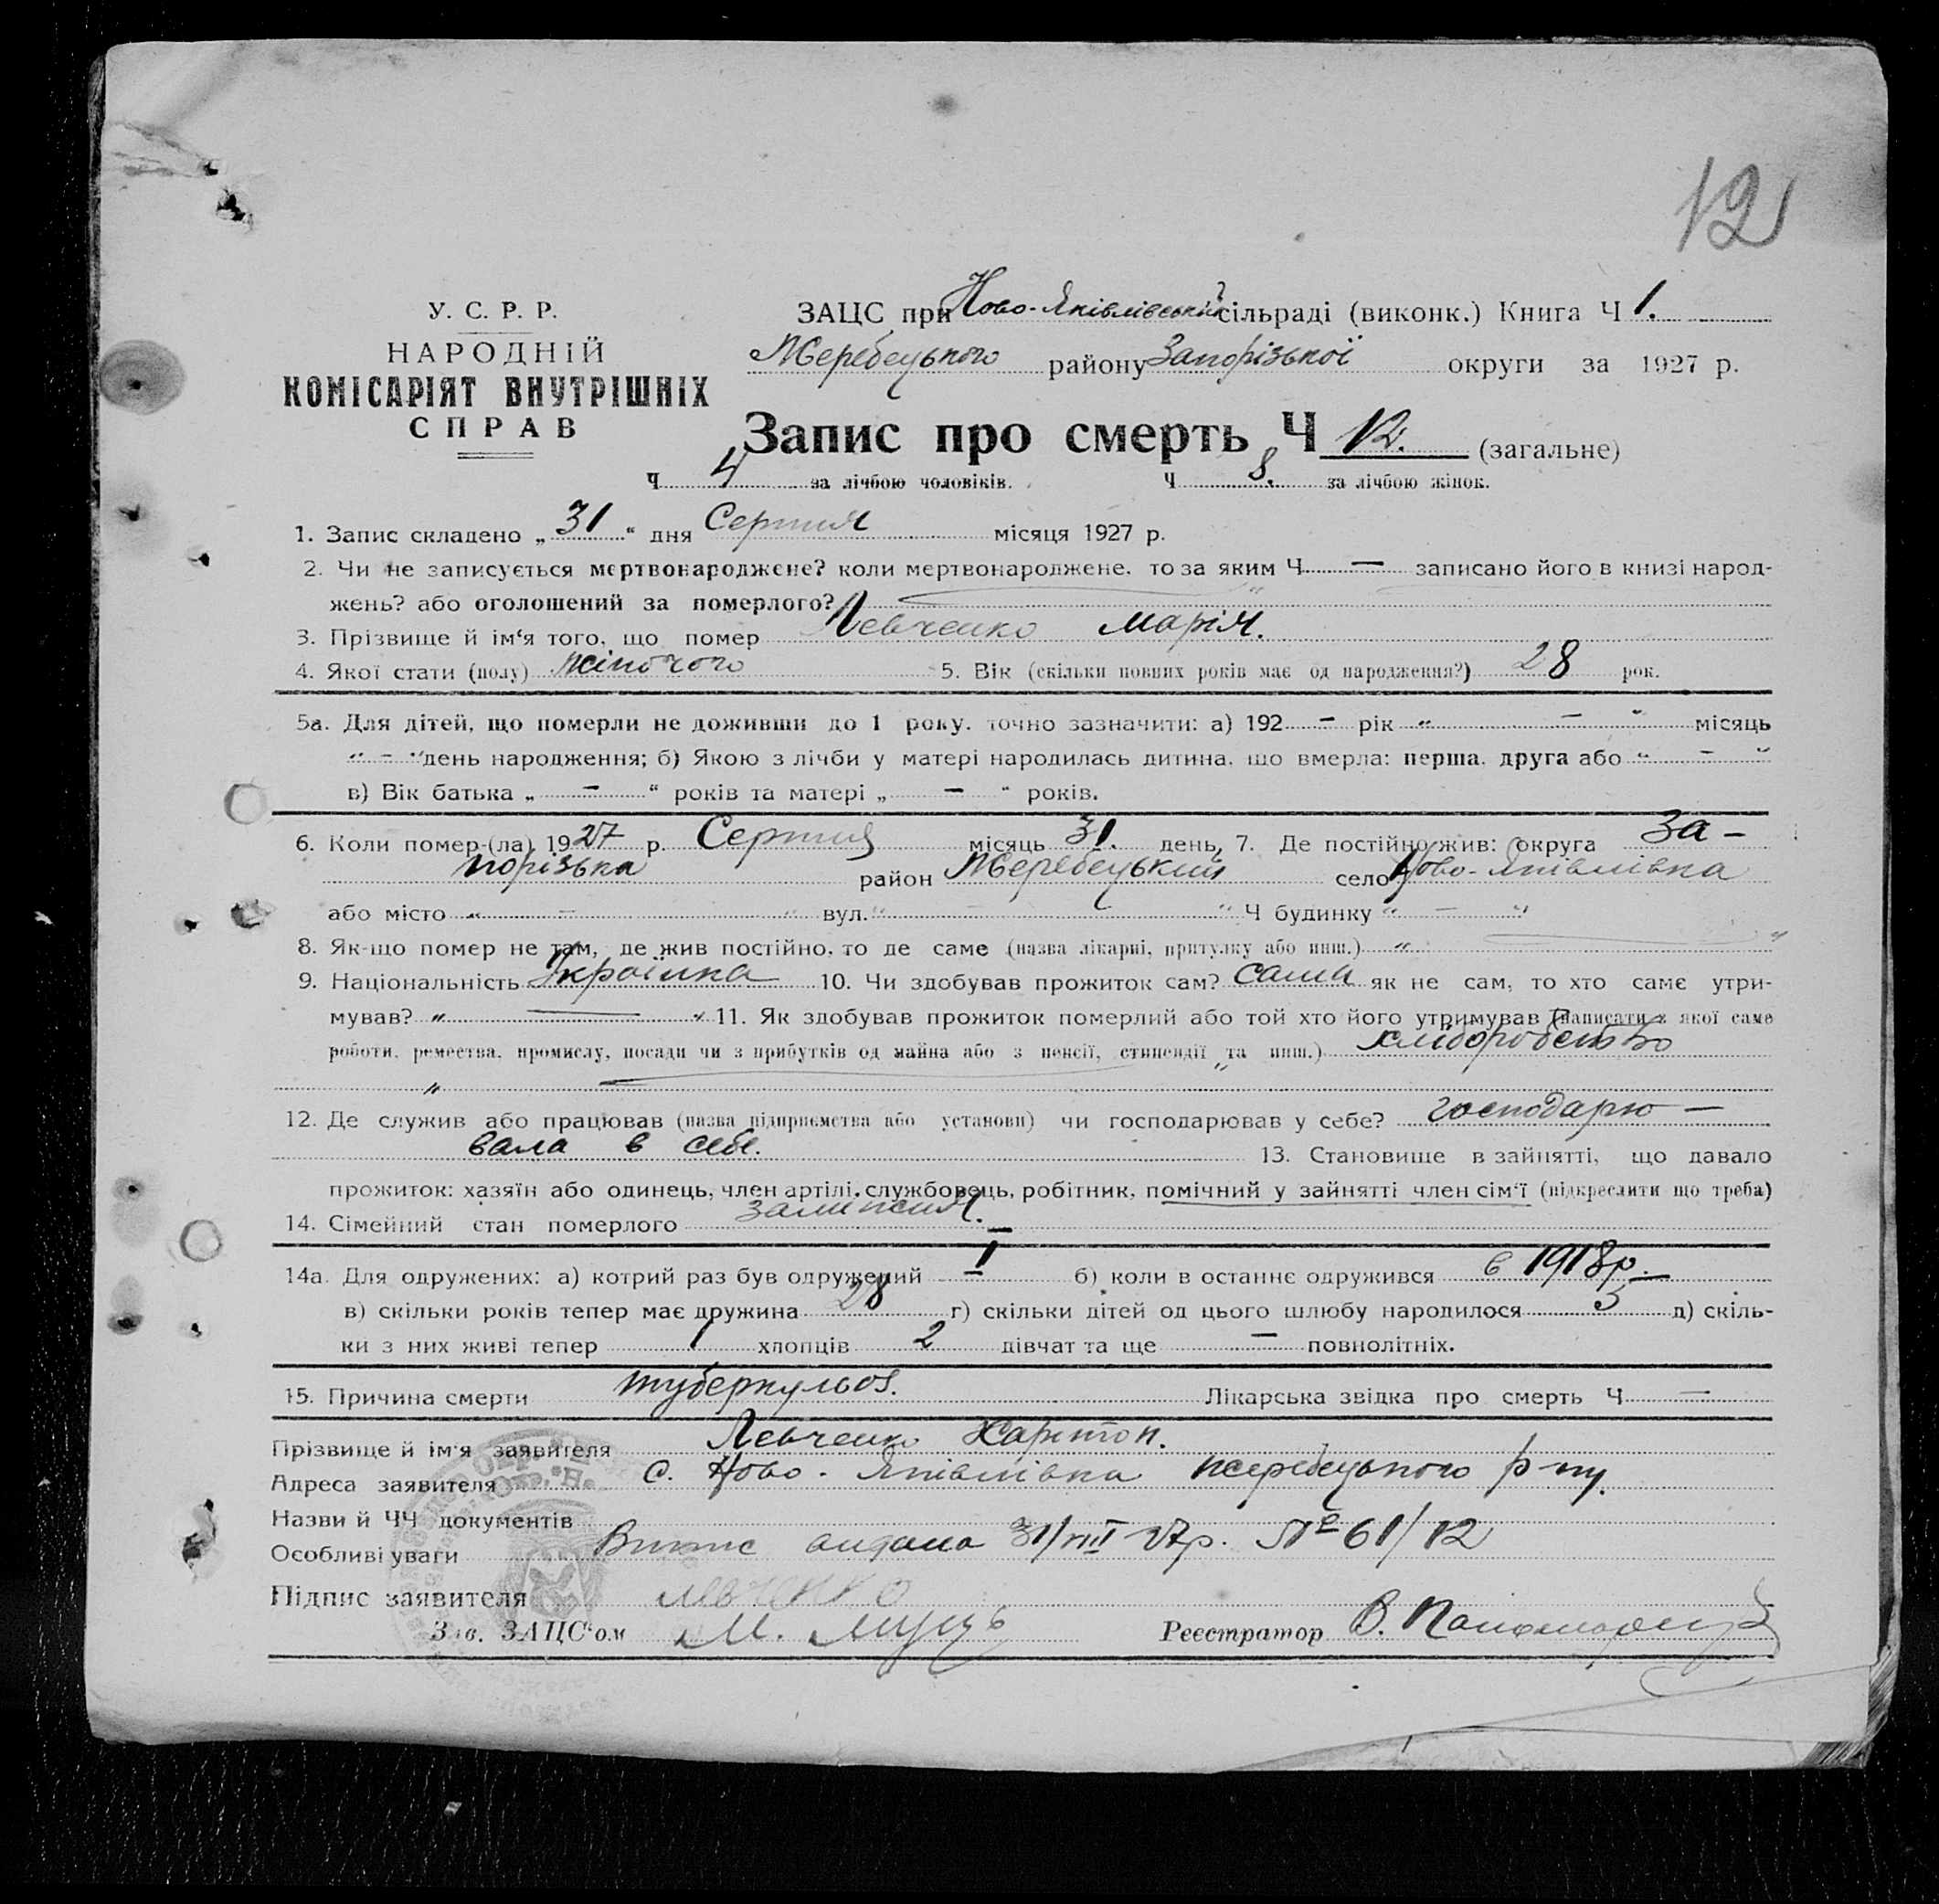 12
У. С. Р. Р.
НАРОДНІЙ
КОМІСАРІЯТ ВНУТРІШНІХ
СПРАВ
ЗАЦС при Ново-Яківлівській сільраді (виконк.) Книга Ч 1.
Жеребецького району Запорізької округи за 1927 р.
Запис про смерть Ч 12. (загальне)
Ч 4 за лічбою чоловіків. Ч 8. за лічбою жінок.
1. Запис складено „ 31 “ дня Серпня місяця 1927 р.
2. Чи не записується мертвонароджене? коли мертвонароджене. то за яким Ч — записано його в книзі народ-
жень? або оголошений за померлого?
3. Прізвище й ім‘я того, що помер Левченко Марія.
4. Якої стати (полу) жіночого 5. Вік (скільки повних років має од народження?) 28 рок.
5а. Для дітей, що померли не доживши до 1 року. точно зазначити: а) 192 – рік „ – “ місяць
“ – “ день народження; б) Якою з лічби у матері народилась дитина, що вмерла: перша, друга або “ – “
в) Вік батька „ – “ років та матері „ – “ років.
6. Коли помер-(ла) 1927 р. Серпня місяць 31. день, 7. Де постійно жив: округа За-
порізька район Жеребецький село Ново-Яківлівка
або місто „ – “ вул. “ – “ Ч будинку “ – “
8. Як-що помер не там, де жив постійно, то де саме (назва лікарні, притулку або инш.) “ — “
9. Національність Українка 10. Чи здобував прожиток сам? сама як не сам, то хто саме утри-
мував? “ — “ 11. Як здобував прожиток померлий або той хто його утримував (написати з якої саме
роботи, ремества, промислу, посади чи з прибутків од майна або з пенсії, стипендії та инш.) хліборобство
“ — “
12. Де служив або працював (назва підприємства або установи) чи господарював у себе? господарю-
вала в себе. 13. Становище в зайнятті, що давало
прожиток: хазяїн або одинець, член артілі, службовець, робітник, помічний у зайнятті член сім‘ї (підкреслити що треба)
14. Сімейний стан померлого замужня.
14а. Для одружених: а) котрий раз був одружений I б) коли в останнє одружився в 1918 р.
в) скільки років тепер має дружина 28 г) скільки дітей од цього шлюбу народилося 5 д) скіль-
ки з них живі тепер 1 хлопців 2 дівчат та ще — повнолітніх.
15. Причина смерти туберкульоз. Лікарська звідка про смерть Ч —
Прізвище й ім‘я заявителя Левченко Харитон.
Адреса заявителя с. Ново-Яківлівка жеребецького р-ну.
Назви й ЧЧ документів
Особливі уваги Випис видана 31/VIII 27р. № 61/12
Підпис заявителя Левченко
Зав. ЗАЦС‘ом М.
Реєстратор В.